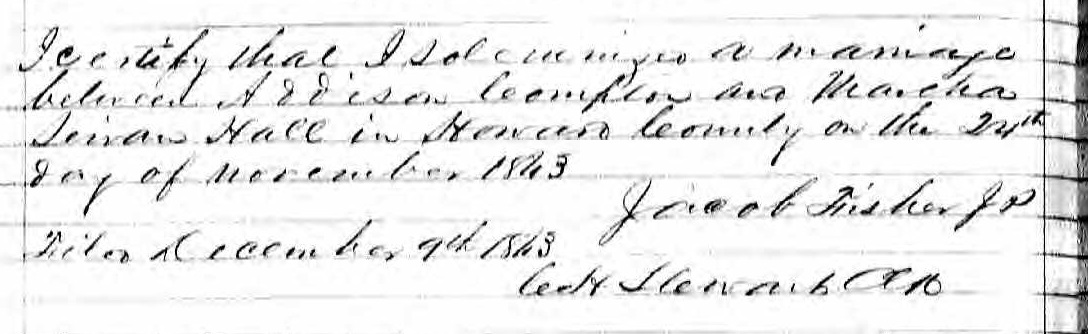 I certify that I solemnized a marriage
between Addison Compton and Martha
Hall in Howard County on the 24th
day of November 1863
Jacob Fisher JP
Filed December 9th 1863
Stewart